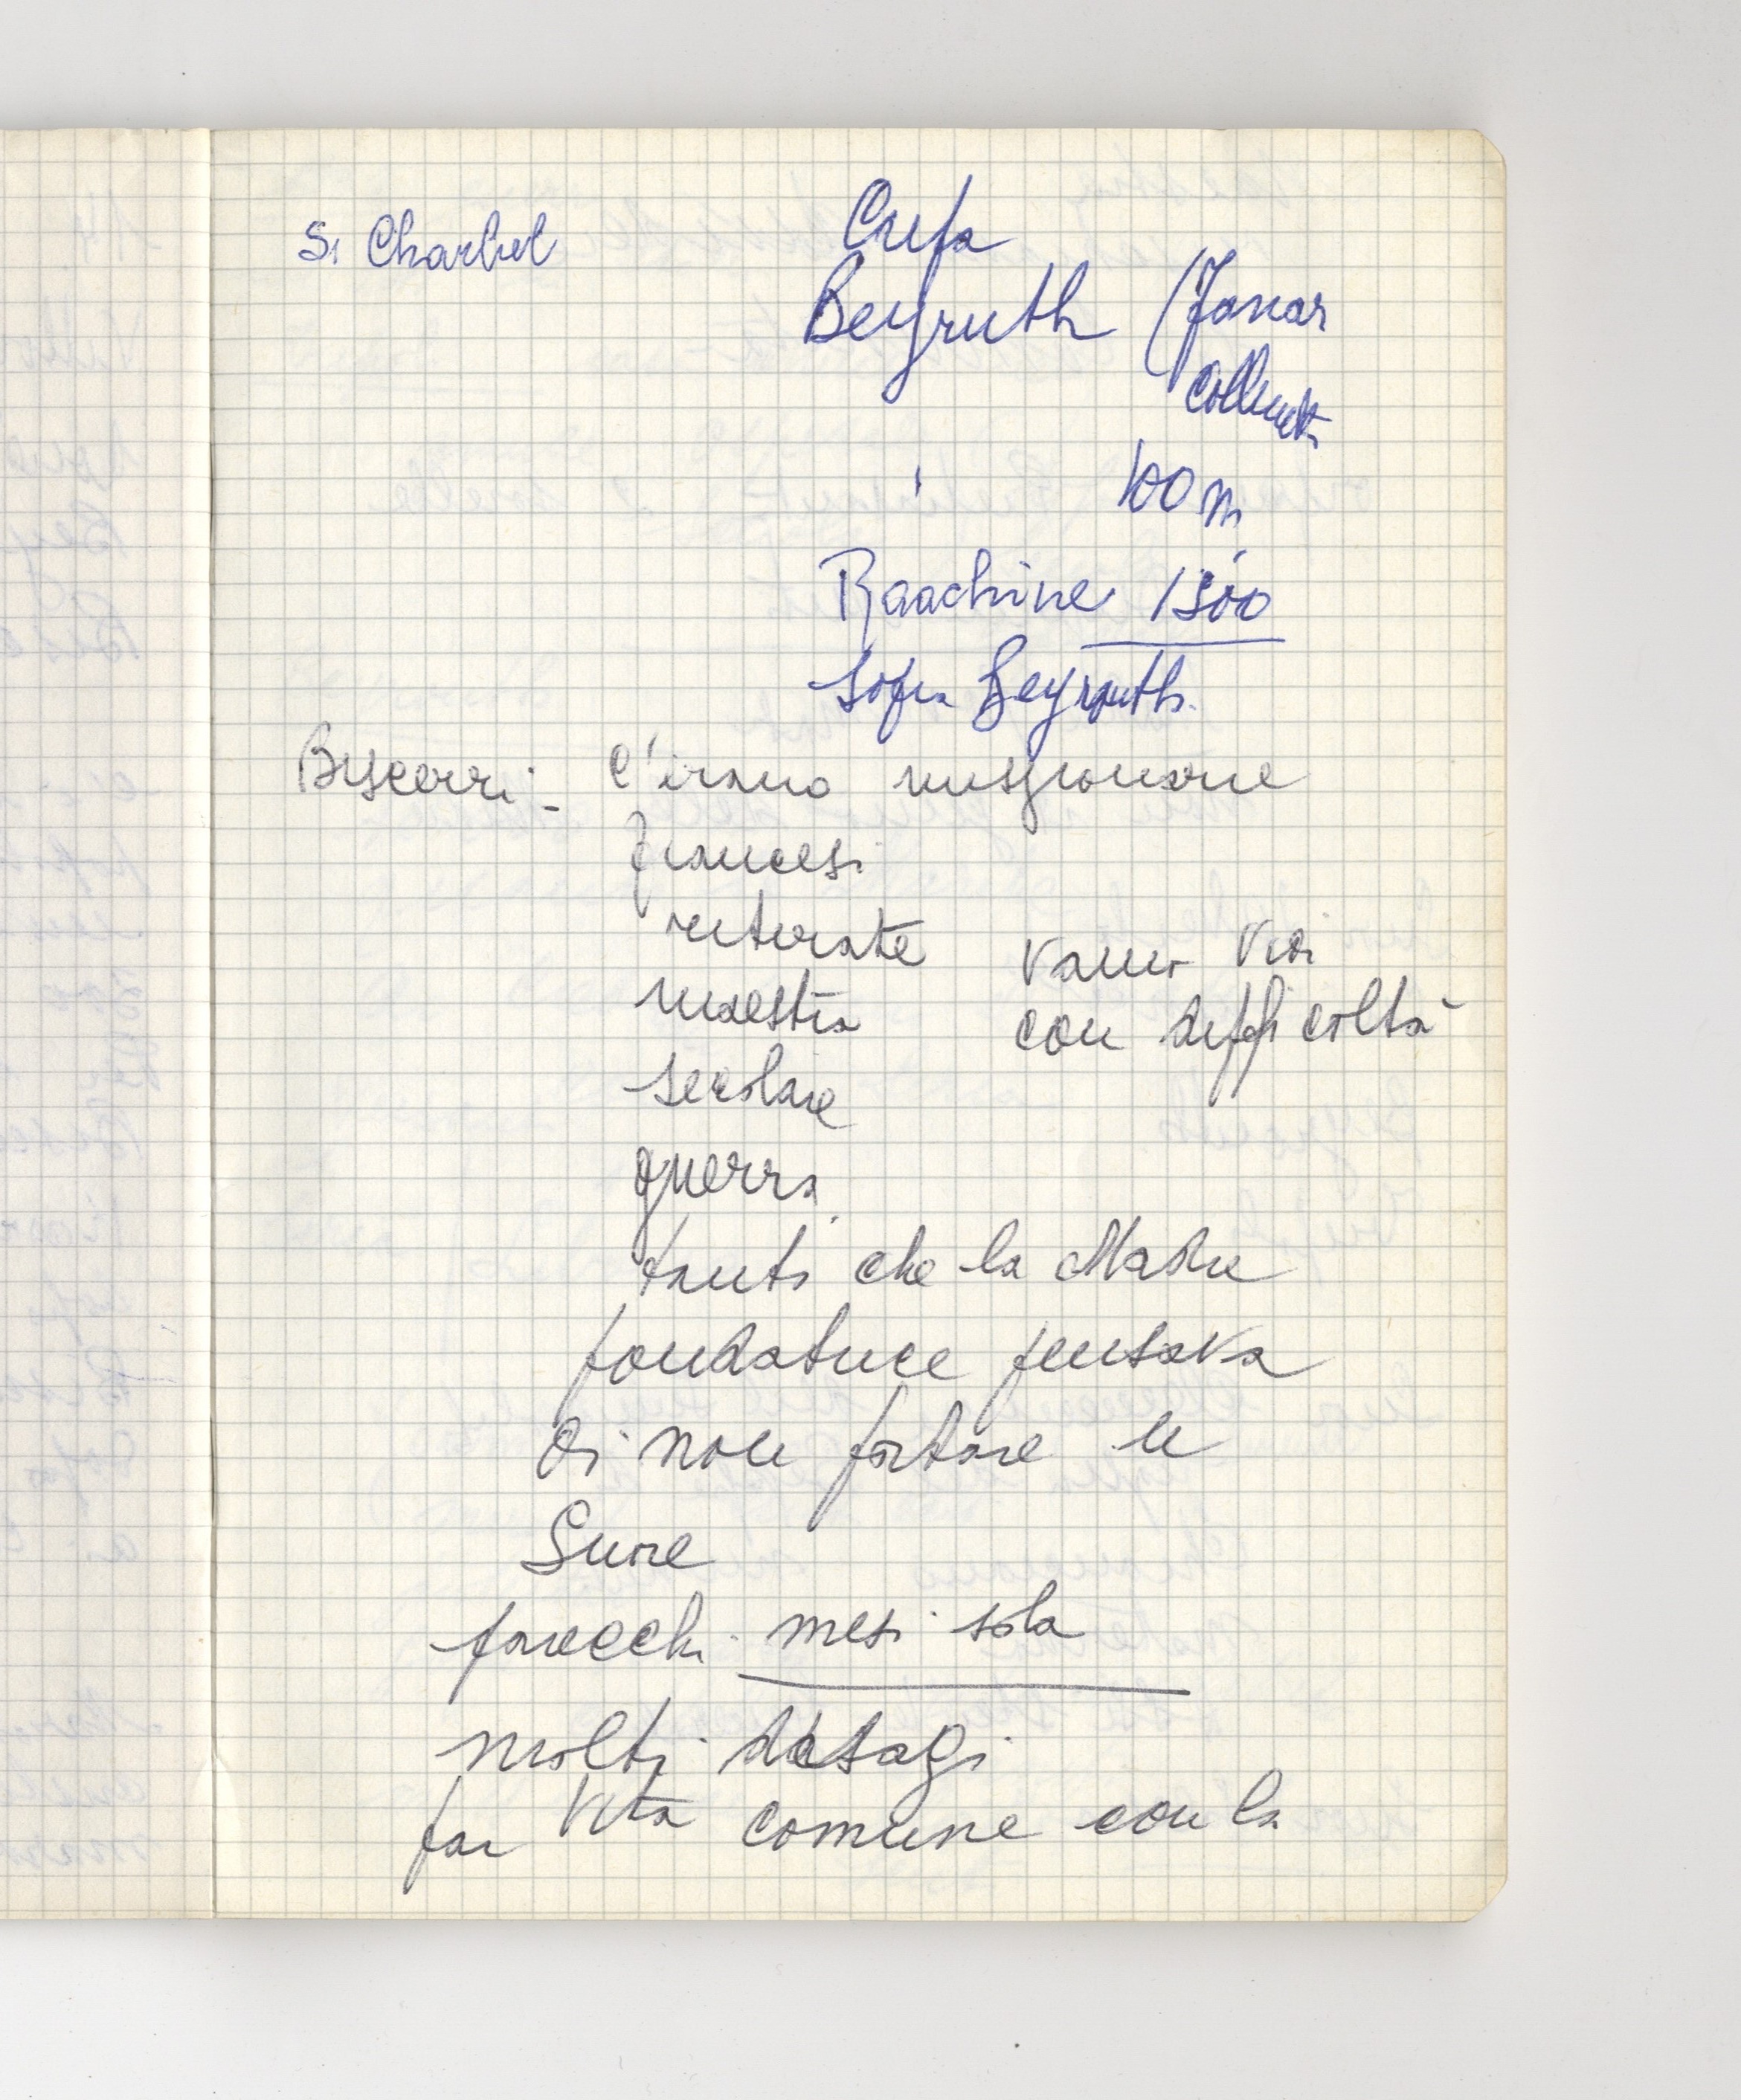 S. Charbel
Crefa
Beyruth (Janar
100 m
Raachine 1500
sopra Beyruth.
Biscerri - C'erano missionarie
francesi
ritirate
maestra
secolare
guerra
vanno via
con difficoltà
tanto che la Madre
fondatrice pensava
di non portare le
Suore
parecchi mesi sola
molti disagi
far vita comune con la